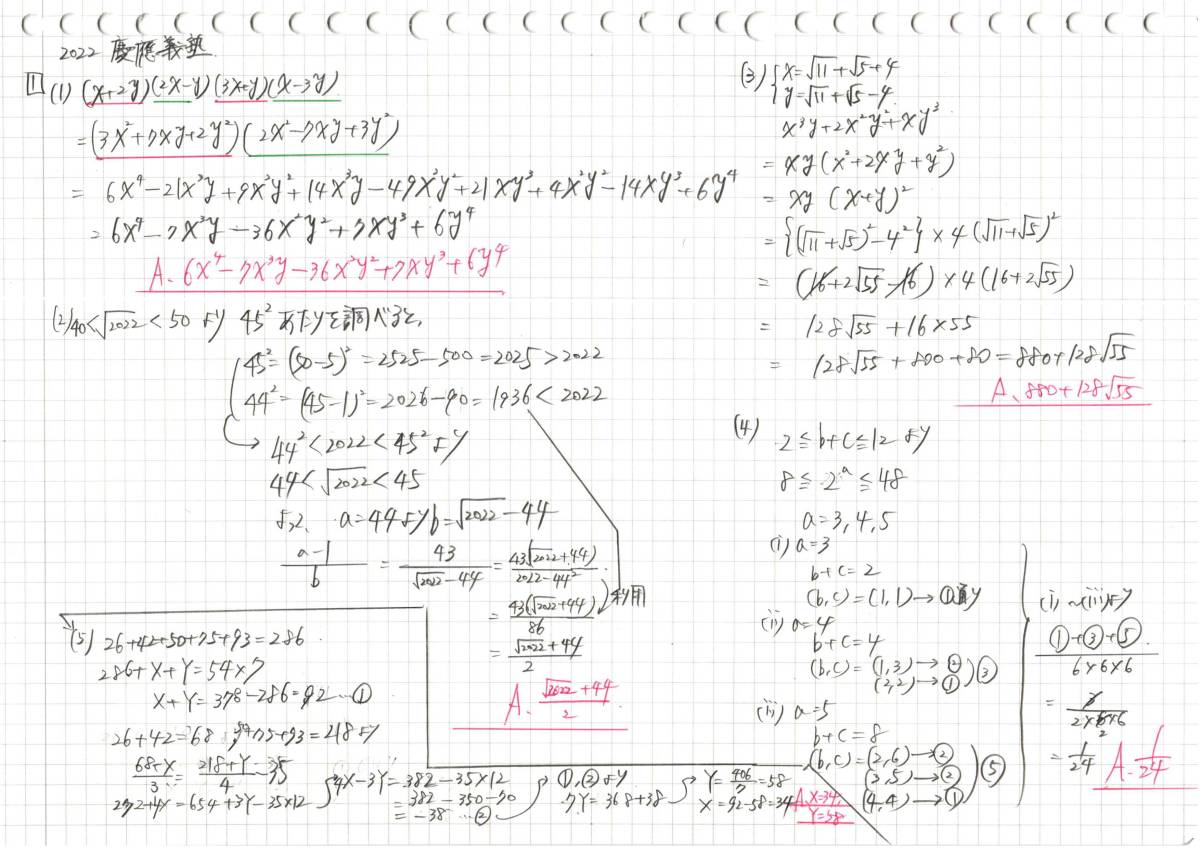 2022 慶應義塾
1 (1) (x+2y)(2x-y)(3x+y)(x-3y)
=(3x²+7xy+2y²)(2x²-7xy+3y²)
= 6x⁴-21x³y+9x²y²+14x³y-49x²y²+21xy³+4x²y²-14xy³+6y⁴
= 6x⁴-7x³y-36x²y²+7xy³+6y⁴
A. 6x⁴-7x³y-36x²y²+7xy³+6y⁴
(2) 40<√2022<50 より 45² あたりを調べると、
45²=(50-5)²=2525-500=2025>2022
44²=(45-1)²=2026-90=1936<2022
→ 44²<2022<45² より
44<√2022<45
よって、 a=44よりb=√2022-44
(a-1)/b = 43/(√2022-44) = 43(√2022+44)/(2022-44²)
= 43(√2022+44)/86 利用
= (√2022+44)/2
A. (√2022+44)/2
(3) {x=√11+√5+4
{y=√11+√5-4
x³y+2x²y²+xy³
= xy(x²+2xy+y²)
= xy (x+y)²
= {(√11+√5)²-4²}×4(√11+√5)²
= (16+2√55-16)×4(16+2√55)
= 128√55+16×55
= 128√55+800+80=880+128√55
A. 880+128√55
(4) 2≦b+c≦12 より
8≦2ᵃ≦48
a=3,4,5
(i) a=3
b+c=2
(b,c)=(1,1)→①通り
(ii) a=4
b+c=4
(b,c)=(1,3)→②
(2,2)→① ③
(iii) a=5
b+c=8
(b,c)=(2,6)→②
(3,5)→② ⑤
(4,4)→①
(i)~(iii)より
(①+③+⑤)/(6×6×6)
= 3/(2×6×6) 2
= 1/24 A. 1/24
(5) 26+42+50+75+93=286
286+X+Y=54×7
X+Y=378-286=92…①
26+42=68, 50+75+93=218より
(68+X)/3=(218+Y)/4-35
272+4X=654+3Y-35×12
4X-3Y=382-35×12
=382-350-70
=-38…②
①,②より
7Y=368+38
Y=406/7=58
X=92-58=34
A. X=34,
Y=58